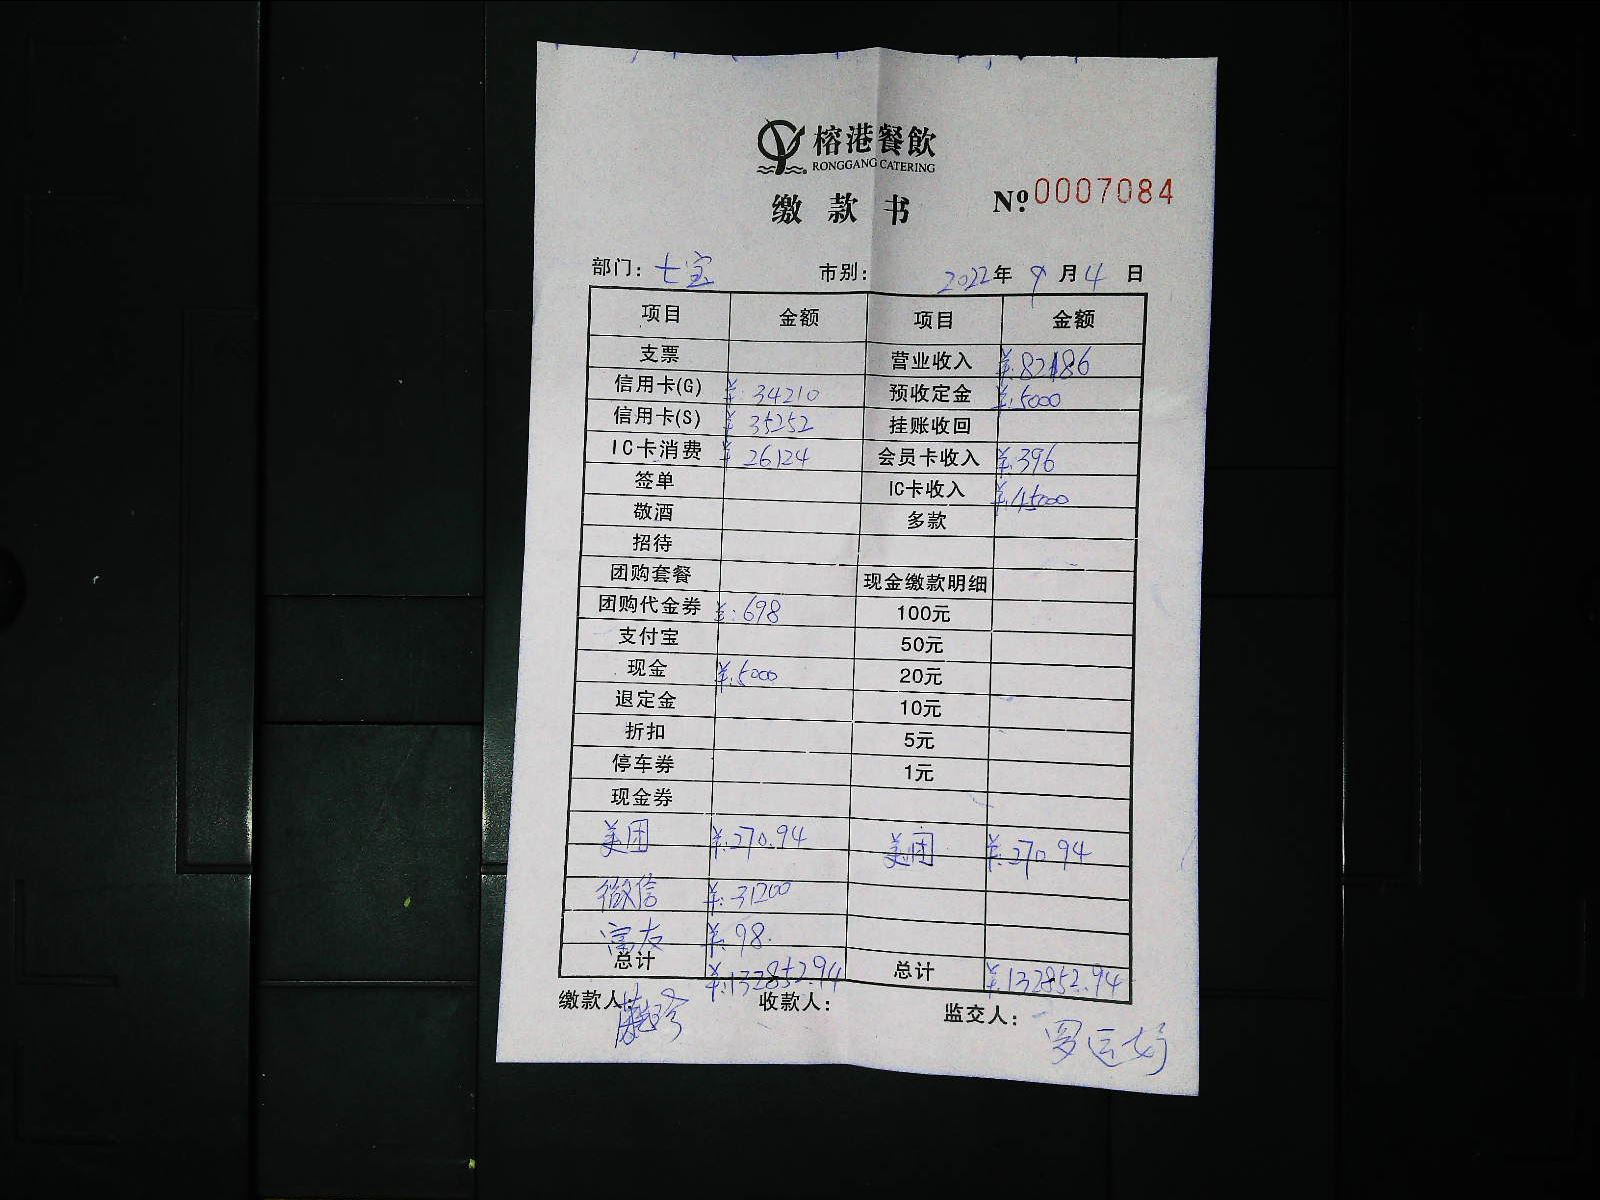 榕港餐飲
RONGGANG CATERING
缴款书
Nº: 0007084
部门: 七宝 市别: 2022年 9月4日
项目 金额 项目 金额
支票 营业收入 ¥:82186
信用卡(G) ¥:34210 预收定金 ¥:5000
信用卡(S) ¥35252 挂账收回
IC卡消费 ¥26124 会员卡收入 ¥:396
签单 IC卡收入 ¥:45000
敬酒 多款
招待
团购套餐 现金缴款明细
团购代金券 ¥:698 100元
支付宝 50元
现金 ¥:5000 20元
退定金 10元
折扣 5元
停车券 1元
现金券
美团 ¥:270.94 美团 ¥:270.94
微信 ¥:31200
富友 ¥98.
总计 ¥:132852.94 总计 ¥:132852.94
缴款人: 收款人: 监交人: 罗运好